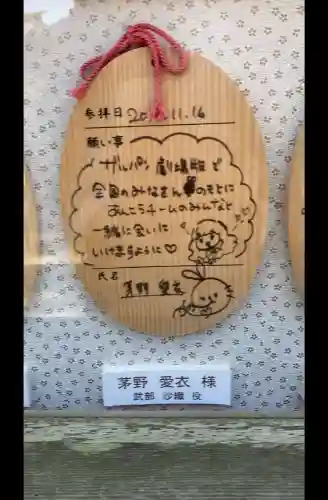 参拝日 20 .11.16
願い事
ガルパン 劇場版 で
全国のみなさんのもとに
あんこうチームのみんなと
一緒に会いに
いけますように♡
氏名
茅野 愛衣
茅野 愛衣 様
武部 沙織 役